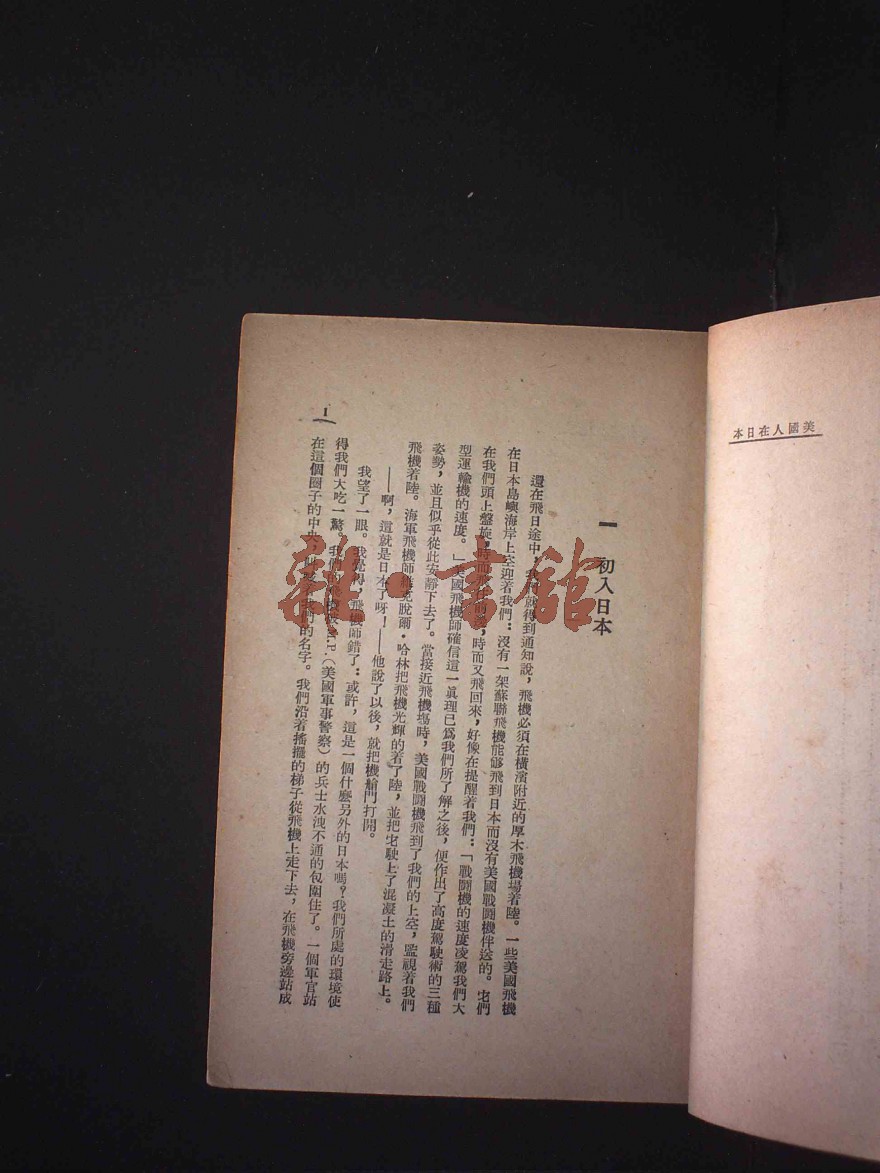 美國人在日本
一 初入日本
還在飛日途中，我們就得到通知說，飛機必須在橫濱附近的厚木飛機場着陸。一些美國飛機
在日本島嶼海岸上空迎着我們：沒有一架蘇聯飛機能够飛到日本而沒有美國戰鬪機伴送的。它們
在我們頭上盤旋，時而飛往前 ，時而又飛回來，好像在提醒着我們：「戰鬪機的速度凌駕我們大
型運輸機的速度。」美國飛機師確信這一眞理已爲我們所了解之後，便作出了高度駕駛術的三種
姿勢，並且似乎從此安靜下去了。當接近飛機塲時，美國戰鬪機飛到了我們的上空，監視着我們
飛機着陸。海軍飛機師 克脫爾·哈林把飛機光輝的着了陸，並把它駛上了混凝土的滑走路上。
——啊，這就是日本了呀！——他說了以後，就把機艙門打開。
我望了一眼。我覺得，飛機師錯了：或許，這是一個什麼另外的日本嗎？我們所處的環境使
得我們大吃一驚。我們的飛機被M.P.（美國軍事警察）的兵士水洩不通的包圍住了。一個軍官站
在這個圈子的中央， 我們的名字。我們沿着搖擺的梯子從飛機上走下去，在飛機旁邊站成
1
雜·書館